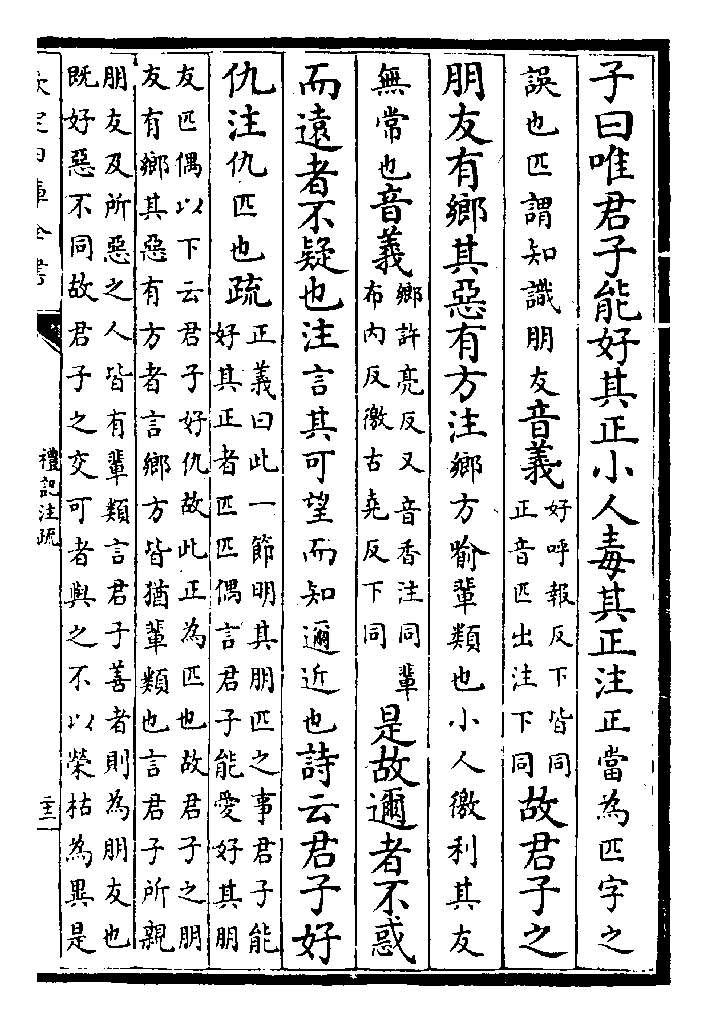 子曰唯君子能好其正小人毒其正注正當為匹字之
誤也匹謂知識朋友音義
好呼報反下皆同
正音匹出注下同
故君子之
朋友有鄉其惡有方注鄉方喻輩類也小人徼利其友
無常也音義
鄉許亮反又音香注同輩
布内反徼古堯反下同
是故邇者不惑
而遠者不疑也注言其可望而知邇近也詩云君子好
仇注仇匹也疏
正義曰此一節明其朋匹之事君子能
好其正者匹匹偶言君子能愛好其朋
友匹偶以下云君子好仇故此正為匹也故君子之朋
友有鄉其惡有方者言鄉方皆猶輩類也言君子所親
朋友及所惡之人皆有輩類言君子善者則為朋友也
既好惡不同故君子之交可者與之不以榮枯為異是
欽定四庫全書
禮記注疏